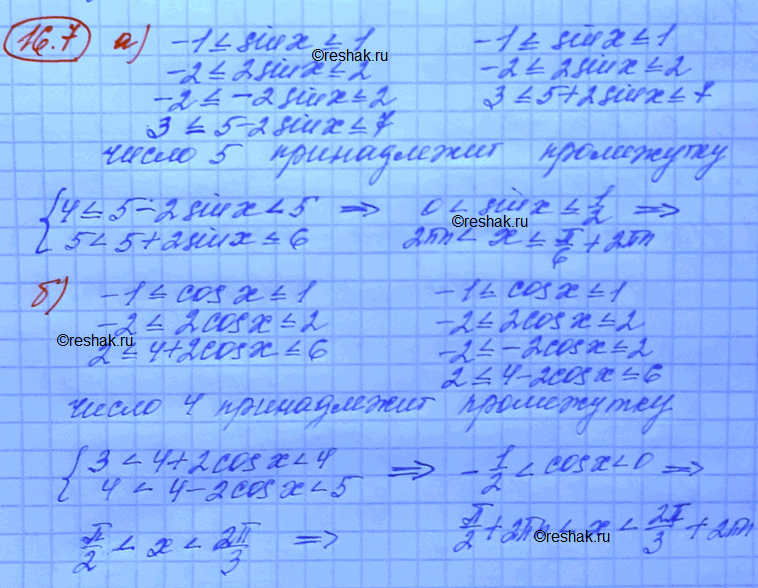 16.7 а) -1 ≤ sinx ≤ 1    -1 ≤ sinx ≤ 1
-2 ≤ 2sinx ≤ 2    -2 ≤ 2sinx ≤ 2
-2 ≤ -2sinx ≤ 2    3 ≤ 5+2sinx ≤ 7
3 ≤ 5-2sinx ≤ 7
число 5 принадлежит промижутку
{ 4 ≤ 5-2sinx < 5 ⇒ 0 < sinx ≤ 1/2 ⇒
5 < 5+2sinx ≤ 6    2πn < x ≤ π/6 + 2πn
б) -1 ≤ cosx ≤ 1    -1 ≤ cosx ≤ 1
-2 ≤ 2cosx ≤ 2    -2 ≤ 2cosx ≤ 2
2 ≤ 4+2cosx ≤ 6    -2 ≤ -2cosx ≤ 2
2 ≤ 4-2cosx ≤ 6
число 4 принадлежит промижутку
{ 3 < 4+2cosx < 4 ⇒ -1/2 < cosx < 0 ⇒
4 < 4-2cosx < 5
π/2 < x < 2π/3 ⇒ π/2 + 2πn < x < 2π/3 + 2πn
©reshak.ru
©reshak.ru
©reshak.ru
©reshak.ru
©reshak.ru